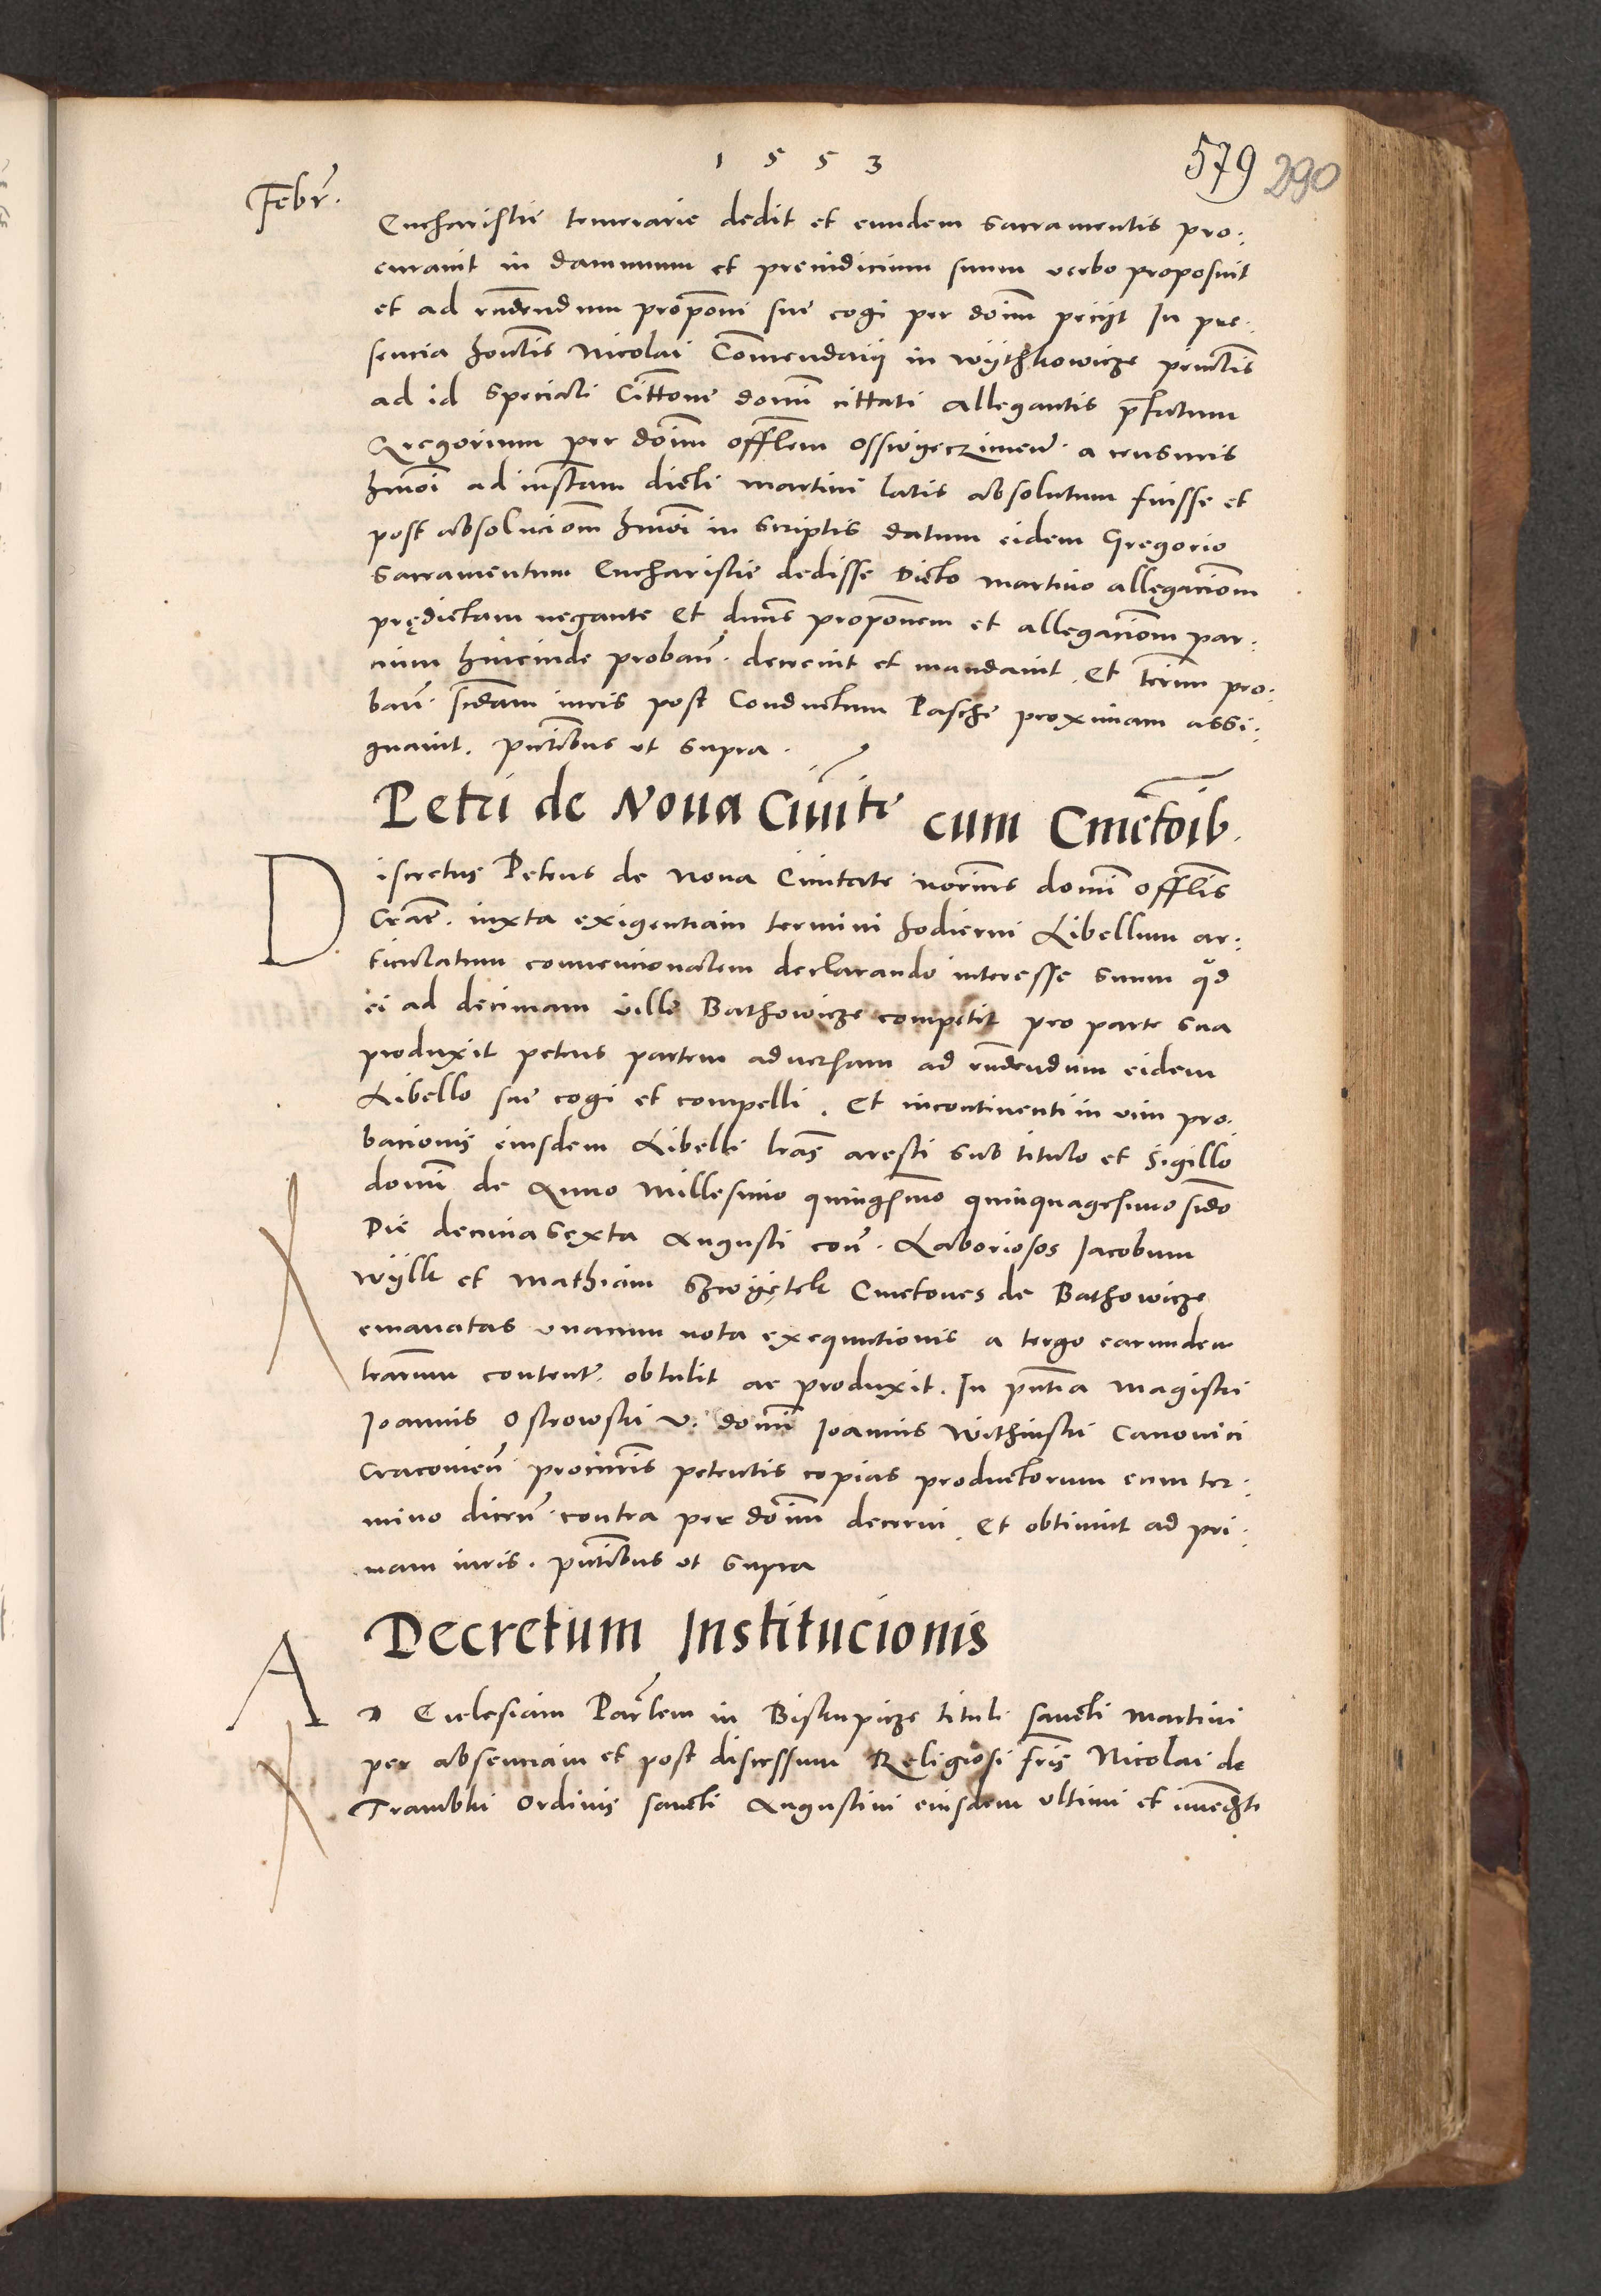 1553
579 290
Febr̃.
Eucharistie temerarie dedit et eundem sacramentis pro:
curauit in damnum et preiudicium suum verbo proposuit
et ad rn̄dendum propōni sue cogi per dōim peciit In pre:
sencia hon̄tis Nicolai Com̄endarij in wÿthkowicze
ad id speciali Citt̄one domi cittati allegantis p̄fatum
Gregorium per dōim offl̄em osswÿeczimeñ. a censuris
hm̄oi ad inst̄am dicti martini latis absolutum fuisse et
post absolucioñ hm̄oi in scriptis datum eidem Gregorio
sacramentum Eucharistie dedisse Dicto martino allegacioñ
prędictam negante Et dn̄us propōnem et allegacioñ par:
cium hincinde probañ. decreuit et mandauit. Et ter̄m pro:
bañ. s̄cdam iuris post Conductum Pasche proximam assi:
gnauit. pn̄tibus vt supra.
Petri de Noua Ciuit̄e cum Cmet̄oib.
Discretus Petrus de Noua Ciuitate nor̄ius domi offl̄is
Crac̄. iuxta exigentiam termini hodierni Libellum ar:
ticulatum conuencionalem declarando interesse suum qd̄
ei ad decimam ville Bathowicze competit pro parte sua
produxit petens partem aduersam ad rn̄dendum eidem
Libello sue cogi et compelli. Et incontinenti in vim pro:
bacionis eiusdem Libelli lr̄as aresti sub titulo et sigillo
domi de Anno Millesimo quinḡsmo quinquagesimo s̄cdo
Die decima sexta Augusti coñ. Laboriosos Jacobum
wÿlk et Mathiam Szwÿętek Cmetones de Bathowicze
emanatas vnacum nota exequutionis a tergo earundem
lr̄arum content̃. obtulit ac produxit. In pn̄tia Magistri
Joannis Ostrowski v. domi Joannis Withinski Canonici
Cracouieñ. procur̄is petentis copias productorum cum ter:
mino diceñ. contra per dōim decerni. Et obtinuit ad pri:
mam iuris. pn̄tibus vt supra
Decretum Institucionis
AD Ecclesiam Parr̄lem in Biskupicze tituli sancti Martini
per absenciam et post discessum Religiosi fr̄is Nicolai de
Trambki Ordinis sancti Augustini eiusdem vltimi et im̄edti